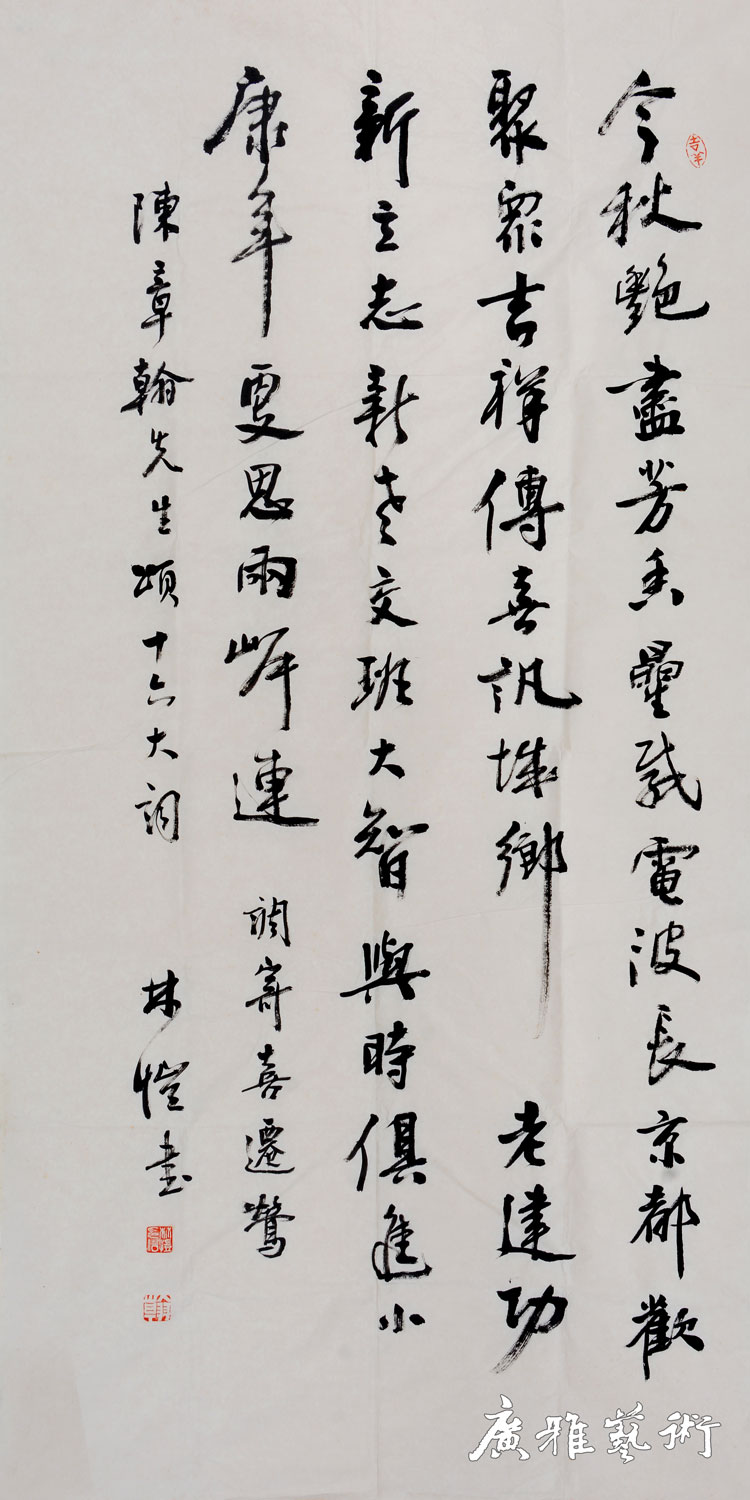 吉羊
今秋艷盡芳香曐載電波長京都歡
聚眾吉祥傳喜訊城鄉 老建功
新立志新老交班大智與時俱進小
康年更思兩岸連 調寄喜遷鶯
陳章翰先生頌十六大詞 林愷書
廣雅藝術